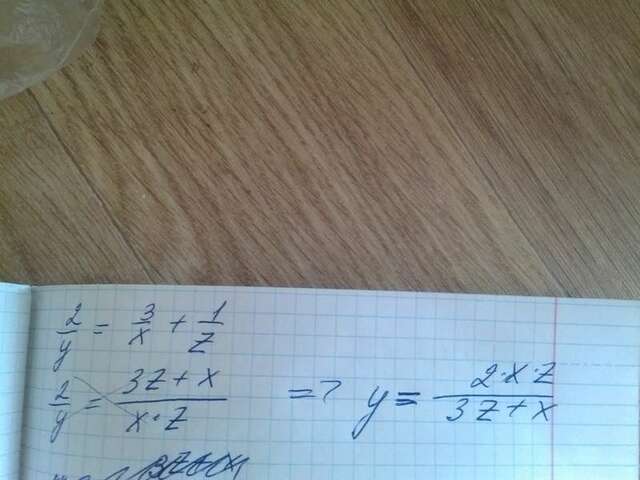 2/y = 3/x + 1/z
2/y = (3z + x)/(x·z) => y = (2·x·z)/(3z + x)